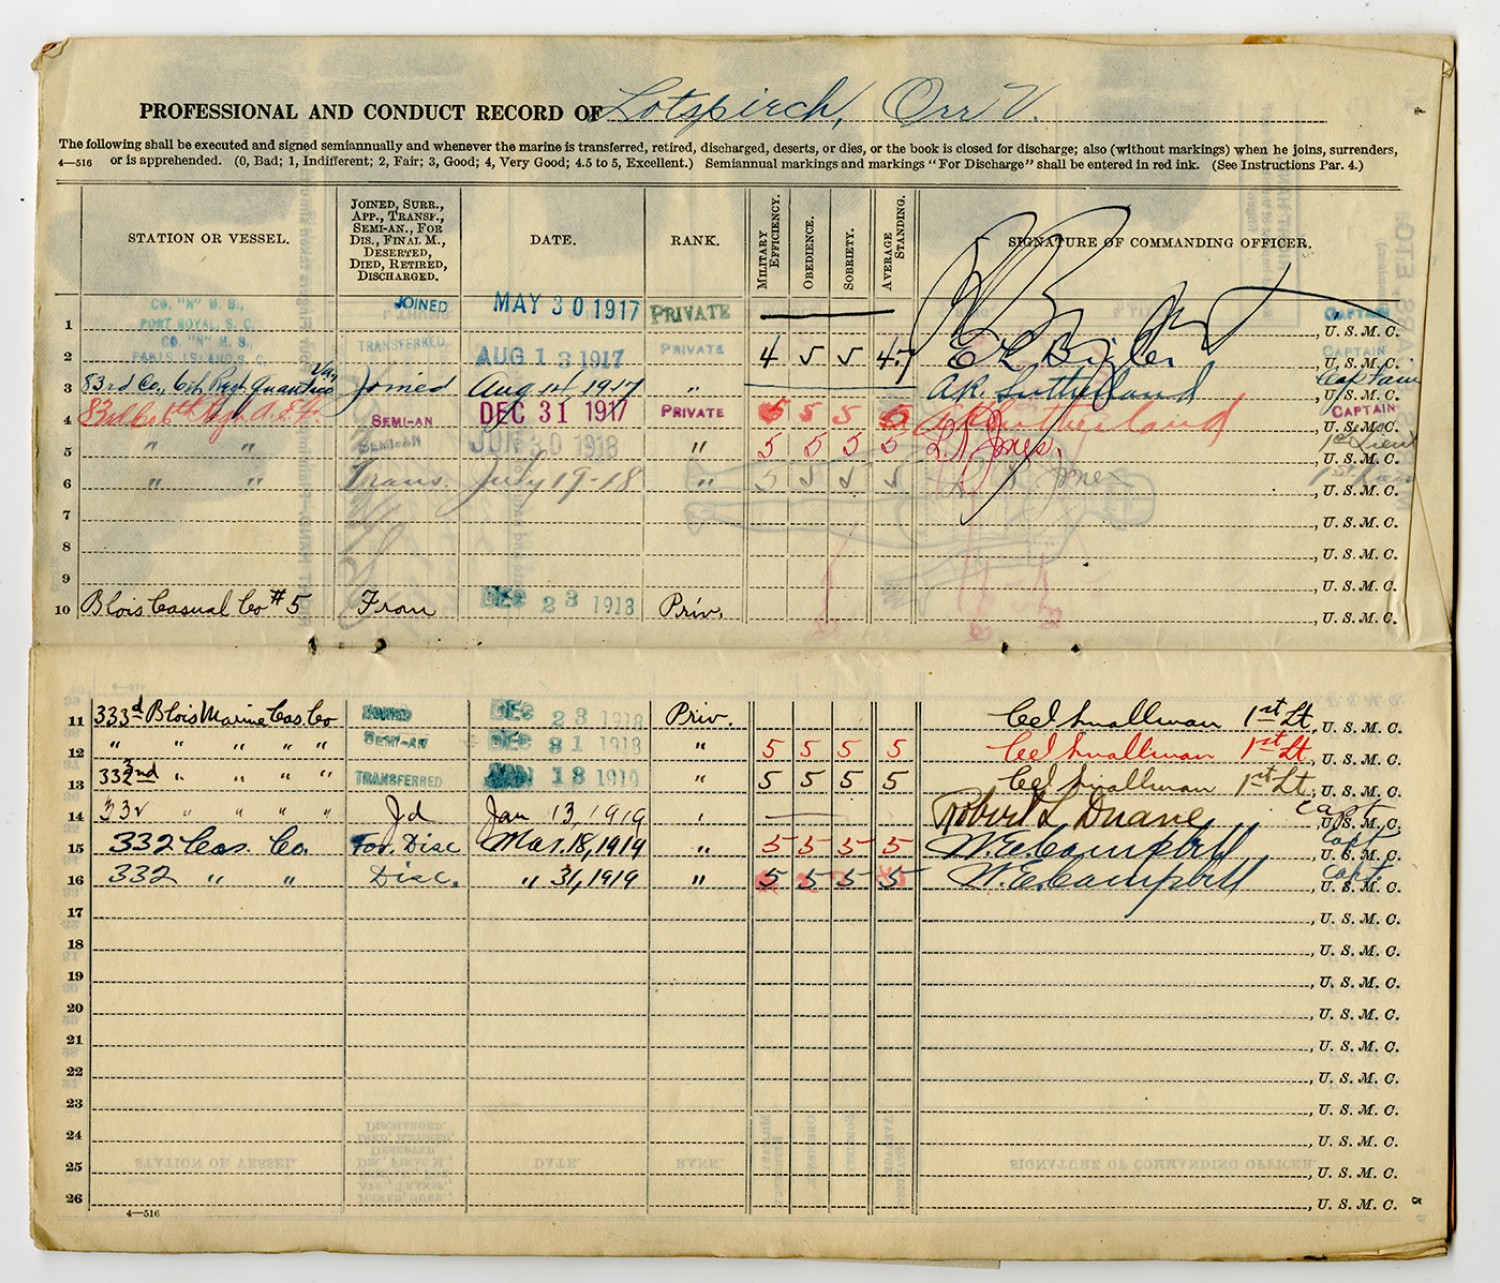 PROFESSIONAL AND CONDUCT RECORD OF Lotspirch, Orr V.
The following shall be executed and signed semiannually and whenever the marine is transferred, retired, discharged, deserts, or dies, or the book is closed for discharge; also (without markings) when he joins, surrenders,
4—516 or is apprehended. (0, Bad; 1, Indifferent; 2, Fair; 3, Good; 4, Very Good; 4.5 to 5, Excellent.) Semiannual markings and markings "For Discharge" shall be entered in red ink. (See Instructions Par. 4.)
STATION OR VESSEL. JOINED, SURR., APP., TRANSF., SEMI-AN., FOR DIS., FINAL M., DESERTED, DIED, RETIRED, DISCHARGED. DATE. RANK. MILITARY EFFICIENCY. OBEDIENCE. SOBRIETY. AVERAGE STANDING. SIGNATURE OF COMMANDING OFFICER.
CO. "N" M. B.,
1 PORT ROYAL, S. C. JOINED MAY 30 1917 PRIVATE CAPTAIN, U. S. M. C.
CO. "N" M. B.
2 PARIS ISLAND S. C. TRANSFERRED AUG 13 1917 PRIVATE 4 5 5 4.7 CAPTAIN, U. S. M. C.
3 83rd Co., 6th Regt Quantico Va. Joined Aug 14, 1917 " A.R. Sutherland Captain, U. S. M. C.
4 83rd Co 6th Regt. A. E. F. SEMI-AN DEC 31 1917 PRIVATE 5 5 5 5 A R Sutherland CAPTAIN, U. S. M. C.
5 " " SEMI-AN JUN 30 1918 " 5 5 5 5 Jones. 1st Lieut, U. S. M. C.
6 " " Trans. July 19-18 " 5 5 5 5 Jones 1st Lieut, U. S. M. C.
7 , U. S. M. C.
8 , U. S. M. C.
9 , U. S. M. C.
10 Blois Casual Co #5 From DEC 23 1918 Priv. , U. S. M. C.
11 333d Blois Marine Cas. Co JOINED DEC 23 1918 Priv. Smallman 1st Lt, U. S. M. C.
12 " " " " " SEMI-AN DEC 31 1918 " 5 5 5 5 Smallman 1st Lt., U. S. M. C.
13 332nd " " " " TRANSFERRED JAN 13 1919 " 5 5 5 5 Smallman 1st Lt, U. S. M. C.
14 332 " " " " Jd Jan 13, 1919 " Robert L Duane Capt, U. S. M. C.
15 332 Cas. Co. For. Disc Mar. 18, 1919 " 5 5 5 5 W. E. Campbell Capt, U. S. M. C.
16 332 " " Disc. " 31, 1919 " 5 5 5 5 W. E. Campbell Capt, U. S. M. C.
17 , U. S. M. C.
18 , U. S. M. C.
19 , U. S. M. C.
20 , U. S. M. C.
21 , U. S. M. C.
22 , U. S. M. C.
23 , U. S. M. C.
24 , U. S. M. C.
25 , U. S. M. C.
26 , U. S. M. C.
4—516